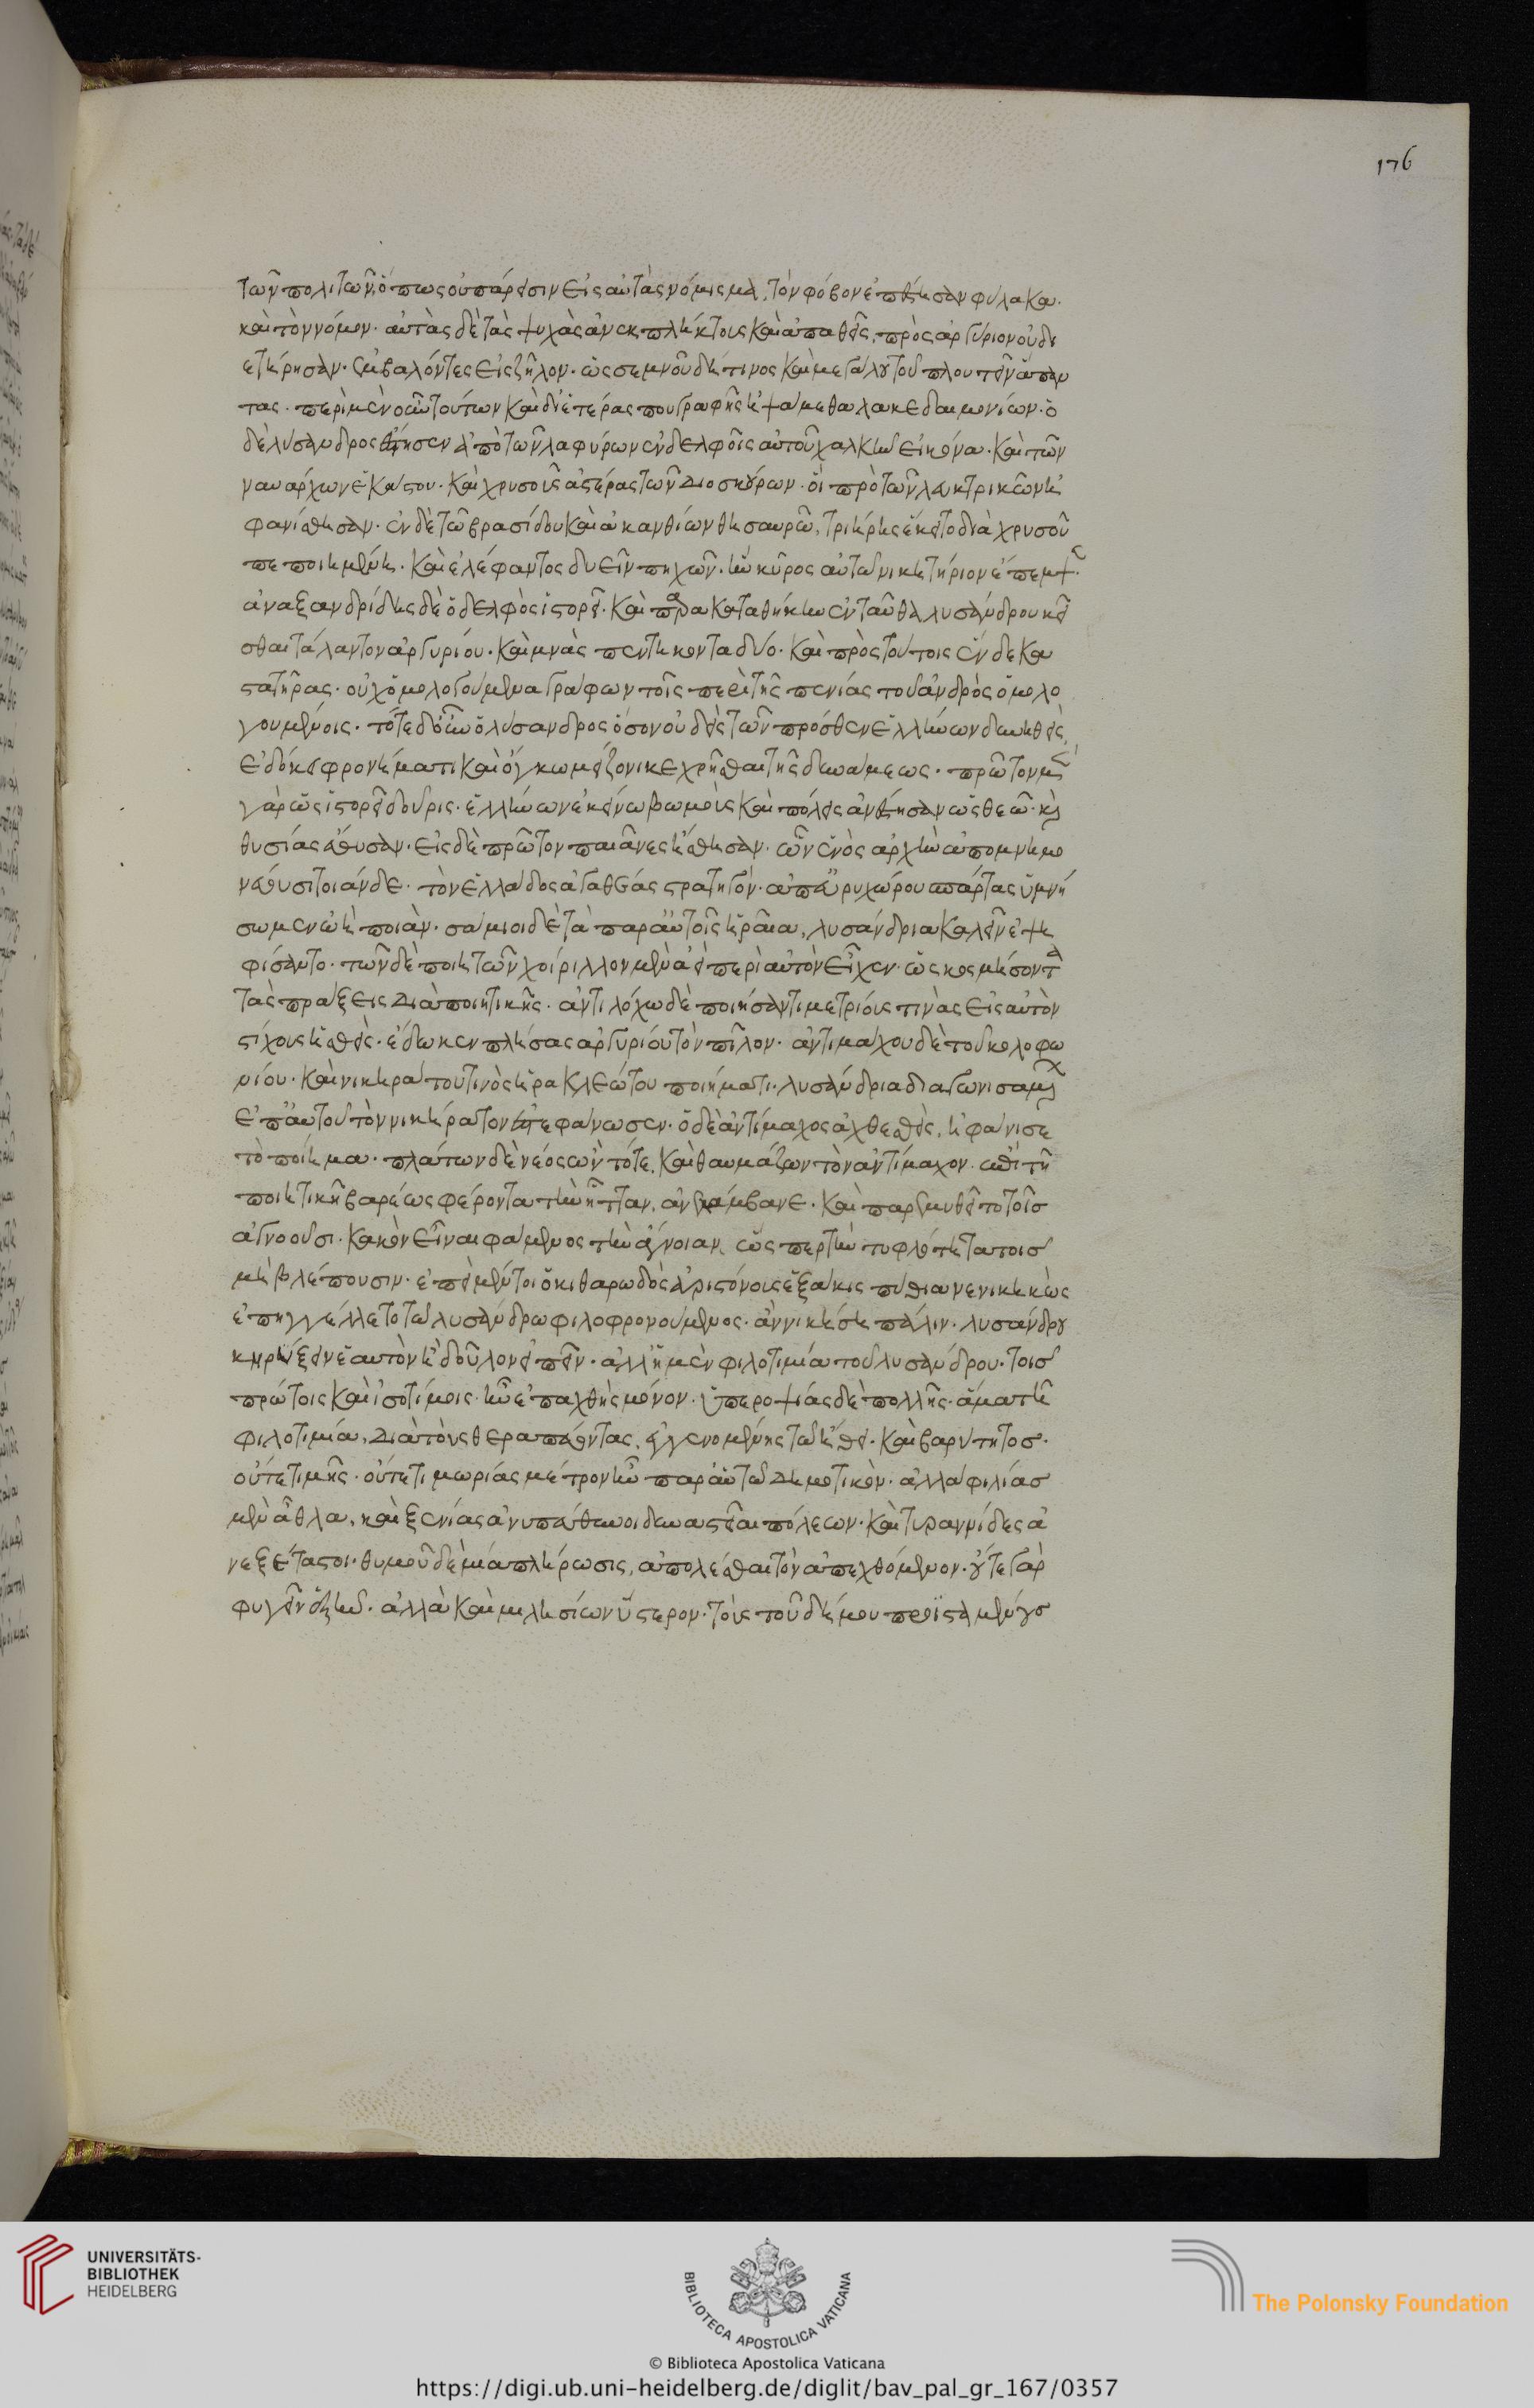 176
τῶν πολιτῶν, ὅπως οὐ πάρεισιν εἰς αὐτὰς νόμισμα, τὸν φόβον ἐπέστησαν φύλακα.
καὶ τὸν νόμον. αὐτὰς δὲ τὰς ψυχὰς ἀνεκπλήκτοις καὶ ἀπαθεῖς, πρὸς ἀργύριον οὐ δι
ετήρησαν. ἐμβαλόντες εἰς ζῆλον. ὡς σεμνοῦ δή τινος καὶ μεγάλου τοῦ πλουτεῖν ἅπαν
τας. περὶ μὲν οὖν τούτων καὶ δι' ἑτέρας που γραφῆς ἡψάμεθα λακεδαιμονίων. ὁ
δὲ λύσανδρος ἔστησεν ἀπὸ τῶν λαφύρων ἐν δελφοῖς αὐτοῦ χαλκῆν εἰκόνα. καὶ τῶν
ναυάρχων ἑκάστου. καὶ χρυσοῦς ἀστέρας τῶν διοσκούρων. οἳ πρὸ τῶν λευκτρικῶν ἠ
φανίσθησαν. ἐν δὲ τῷ βρασίδου καὶ ἀκανθίων θησαυρῷ, τριήρης ἔκειτο διὰ χρυσοῦ
πεποιημένη. καὶ ἐλέφαντος δυεῖν πηχῶν. ἣν κῦρος αὐτῷ νικητήριον ἔπεμψεν.
ἀναξανδρίδης δὲ ὁ δελφὸς ἱστορεῖ. καὶ παρακαταθήκην ἐνταῦθα λυσάνδρου κεῖ
σθαι τάλαντον ἀργυρίου. καὶ μνᾶς πεντήκοντα δύο. καὶ πρὸς τούτοις ἕνδεκα
στατῆρας. οὐχ ὁμολογούμενα γράφων τοῖς περὶ τῆς πενίας τοῦ ἀνδρὸς ὁμολο
γουμένοις. τότε δ' οὖν ὁ λύσανδρος ὅσον οὐδεὶς τῶν πρόσθεν ἑλλήνων δυνηθεὶς,
ἐδόκει φρονήματι καὶ ὄγκῳ μείζονι κεχρῆσθαι τῆς δυνάμεως. πρώτῳ μὲν
γὰρ ὡς ἱστορεῖ δοῦρις. ἑλλήνων ἐκείνῳ βωμοὺς καὶ πόλεις ἀνέστησαν ὡς θεῷ. καὶ
θυσίας ἔθυσαν. εἰς δὲ πρῶτον παιᾶνες ᾔσθησαν. ὧν ἑνὸς ἀρχὴν ἀπομνημο
νεύουσι τοιάνδε. τὸν ἑλλάδος ἀγαθέας στρατηγὸν. ἀπ' εὐρυχώρου σπάρτας ὑμνή
σωμεν ὦ ἰὴ ποιάν. σάμιοι δὲ τὰ παρ' αὐτοῖς ἡραῖα, λυσάνδρια καλεῖν ἐψη
φίσαντο. τῶν δὲ ποιητῶν χοίριλλον μὲν ἀεὶ περὶ αὐτὸν εἶχεν. ὡς κοσμήσοντα
τὰς πράξεις διὰ ποιητικῆς. ἀντιλόχῳ δὲ ποιήσαντι μετρίους τινὰς εἰς αὐτὸν
στίχους ἡσθεὶς. ἔδωκεν πλήσας ἀργυρίου τὸν πῖλον. ἀντιμάχου δὲ τοῦ κολοφω
νίου. καὶ νικηράτου τινὸς ἡρακλεώτου ποιήμασι. λυσάνδρια διαγωνισαμένων
ἐπ' αὐτοῦ τὸν νικήρατον ἐστεφάνωσεν. ὁ δὲ ἀντίμαχος ἀχθεσθεὶς, ἠφάνισε
τὸ ποίημα. πλάτων δὲ νέος ὢν τότε. καὶ θαυμάζων τὸν ἀντίμαχον ἐπὶ τῇ
ποιητικῇ βαρέως φέροντα τὴν ἧτταν, ἀνελάμβανε. καὶ παρεμυθεῖτο τοῖς
ἀγνοοῦσι. κακὸν εἶναι φάμενος τὴν ἄγνοιαν, ὥσπερ τὴν τυφλότητα τοῖς
μὴ βλέπουσιν. ἐπεὶ μέντοι ὁ κιθαρῳδὸς ἀριστόνους ἑξάκις πύθια νενικηκὼς
ἐπηγγέλλετο τῷ λυσάνδρῳ φιλοφρονούμενος. ἂν νικήσῃ πάλιν. λυσάνδρου
κηρύξειν ἑαυτὸν ἦ δοῦλον εἰπεῖν. ἀλλ' ἡ μὲν φιλοτιμία τοῦ λυσάνδρου. τοῖς
πρώτοις καὶ ἰσοτίμοις ἦν ἐπαχθὴς μόνον. ὑπεροψίας δὲ πολλῆς. ἅμα τῇ
φιλοτιμίᾳ, διὰ τοὺς θεραπεύοντας, ἐγγενομένης τῷ ἤθει. καὶ βαρύτητος.
οὔτε τιμῆς. οὔτε τιμωρίας μέτρον ἦν παρ' αὐτῷ δημοτικόν. ἀλλὰ φιλίας
μὲν ἆθλα, καὶ ξενίας ἀνυπεύθυνοι δυναστεῖαι πόλεων. καὶ τυραννίδες ἀ
νεξέταστοι. θυμοῦ δὲ μία πλήρωσις, ἀπολέσθαι τὸν ἀπεχθόμενον. οὔτε γὰρ
φυγεῖν ἐξῆν. ἀλλὰ καὶ μιλησίων ὕστερον. τοὺς τοῦ δήμου προϊσταμένους
UNIVERSITÄTS-
BIBLIOTHEK
HEIDELBERG
BIBLIOTECA APOSTOLICA VATICANA
The Polonsky Foundation
© Biblioteca Apostolica Vaticana
https://digi.ub.uni-heidelberg.de/diglit/bav_pal_gr_167/0357